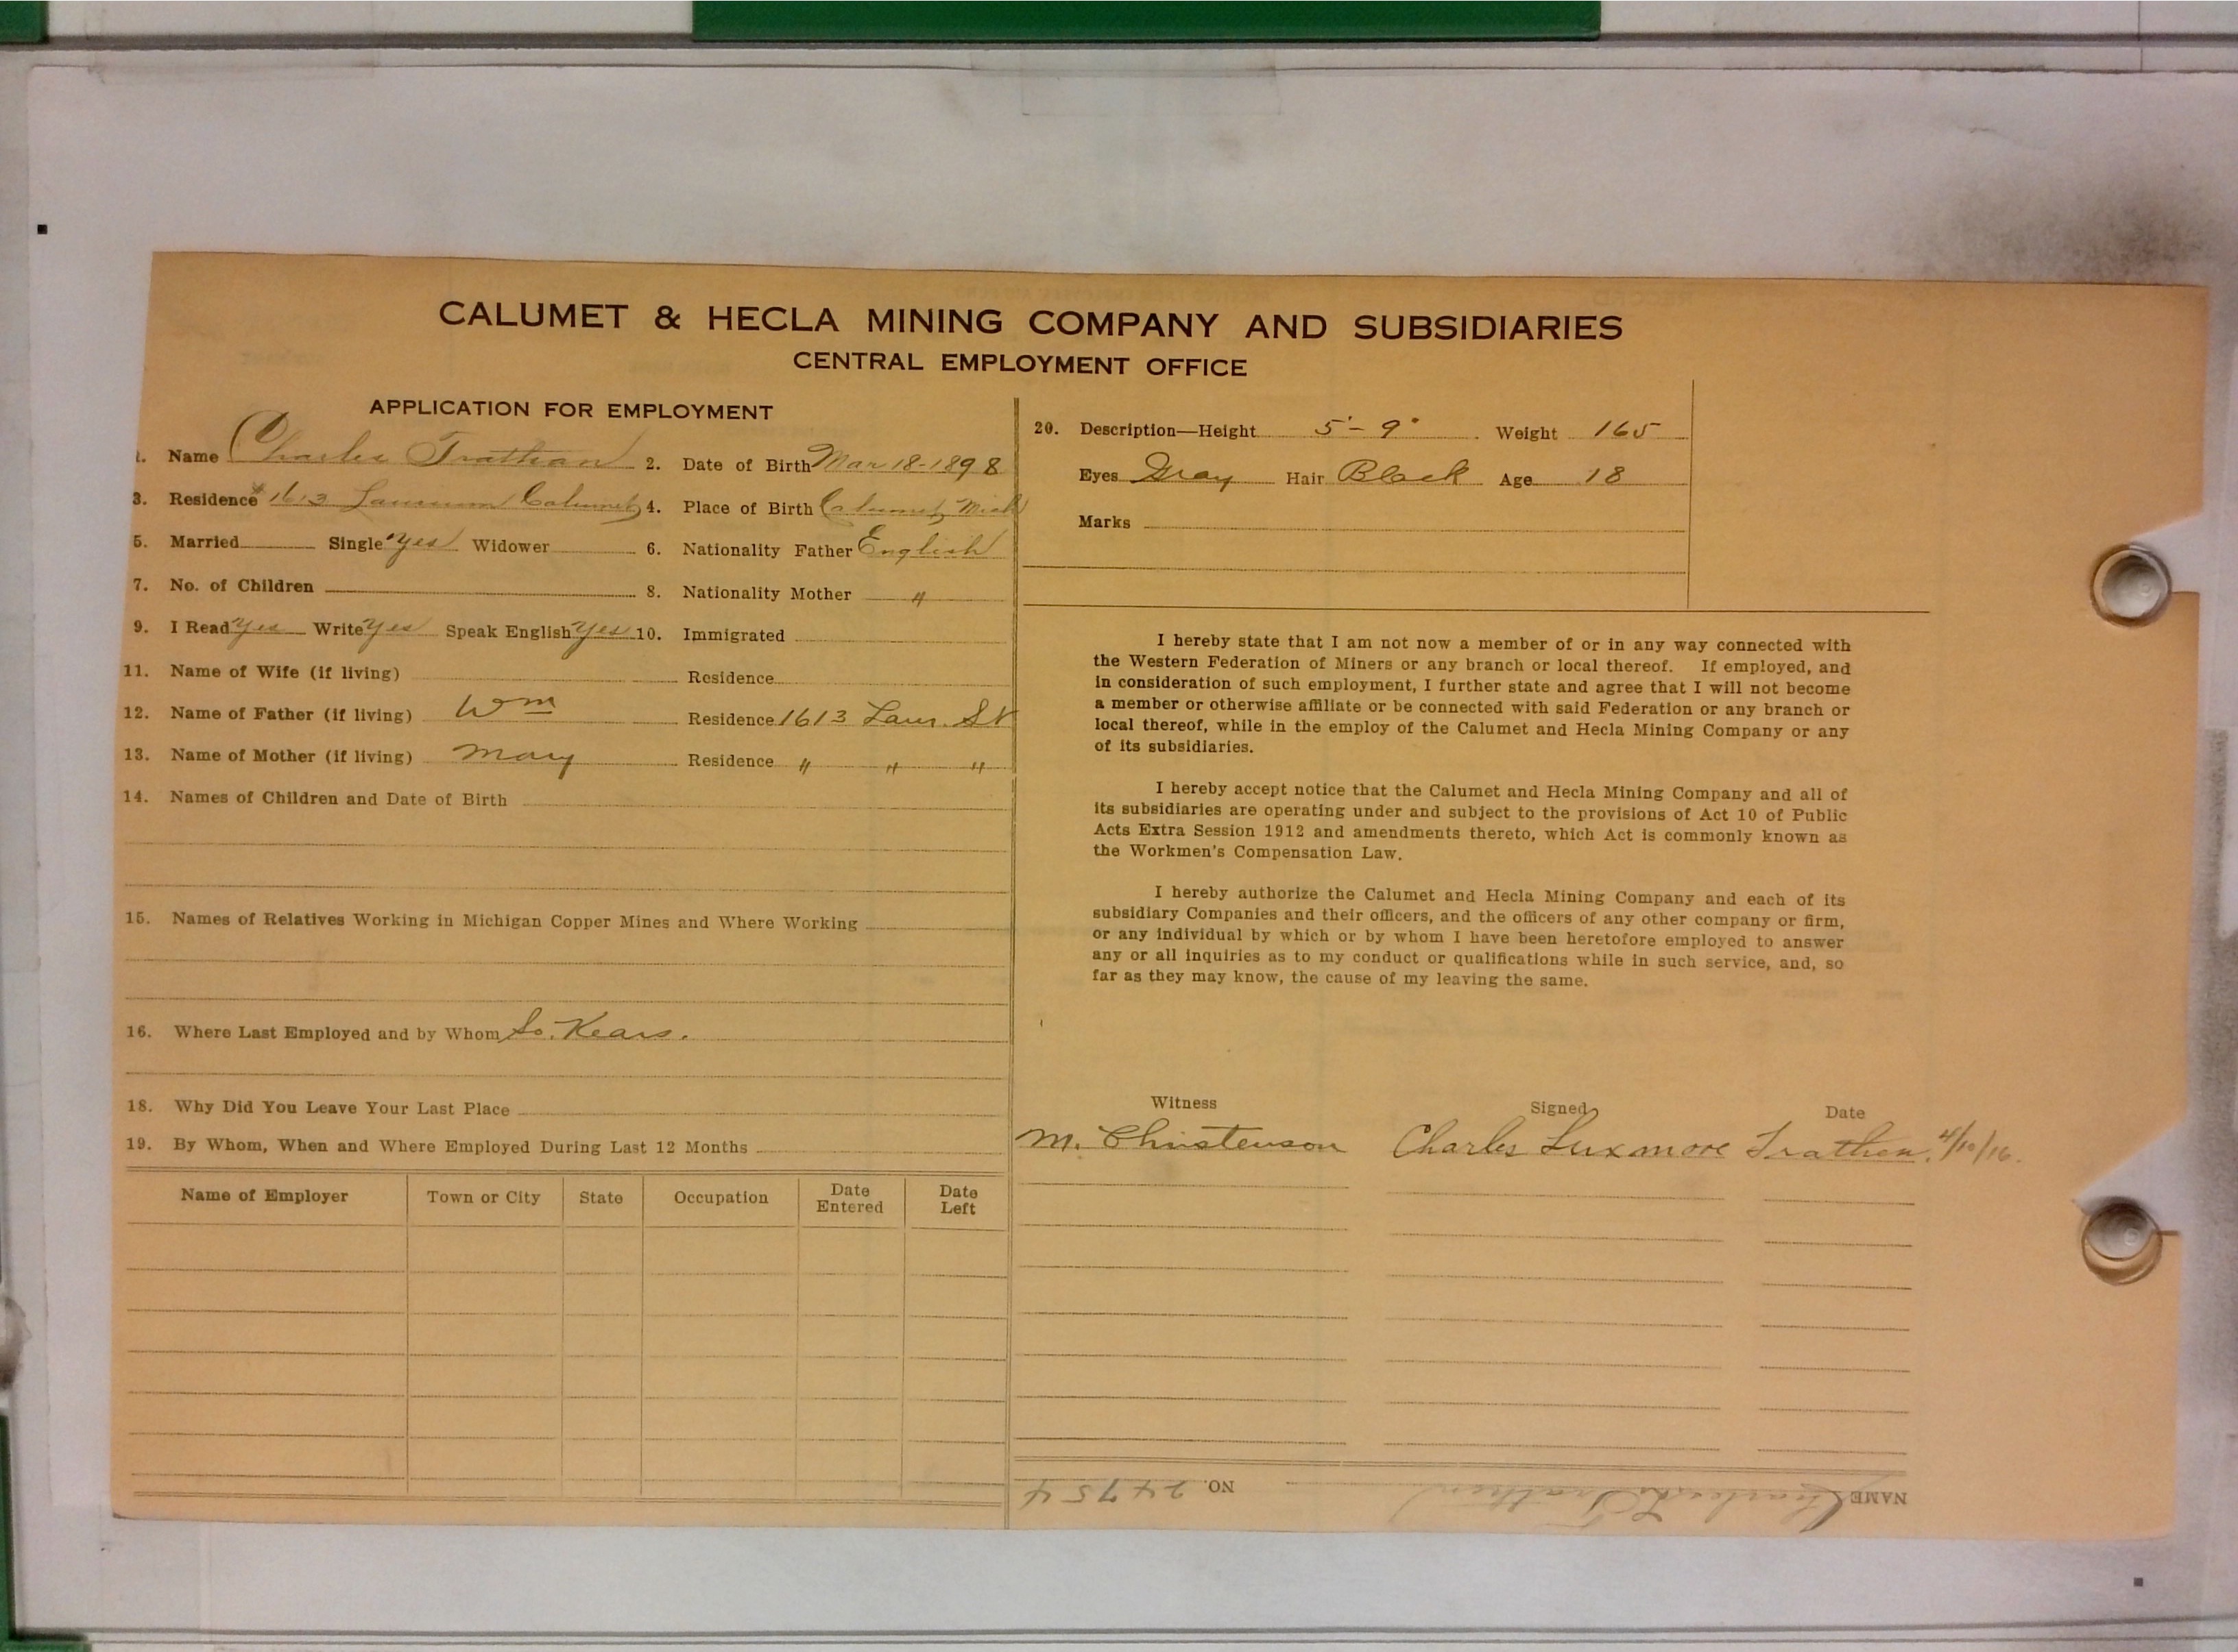 CALUMET & HECLA MINING COMPANY AND SUBSIDIARIES
CENTRAL EMPLOYMENT OFFICE
APPLICATION FOR EMPLOYMENT
1. Name Charles Trathan 2. Date of Birth Mar 18-1898
3. Residence 1613 Laurium Calumet 4. Place of Birth Calumet Mich
5. Married Single yes Widower 6. Nationality Father English
7. No. of Children 8. Nationality Mother "
9. I Read Yes Write Yes Speak English Yes 10. Immigrated
11. Name of Wife (if living) Residence
12. Name of Father (if living) Wm Residence 1613 Laur. St
13. Name of Mother (if living) Mary Residence " " "
14. Names of Children and Date of Birth
15. Names of Relatives Working in Michigan Copper Mines and Where Working
16. Where Last Employed and by Whom So. Kears.
18. Why Did You Leave Your Last Place
19. By Whom, When and Where Employed During Last 12 Months
Name of Employer Town or City State Occupation Date Entered Date Left
20. Description—Height 5'-9" Weight 165
Eyes Gray Hair Black Age 18
Marks
I hereby state that I am not now a member of or in any way connected with
the Western Federation of Miners or any branch or local thereof. If employed, and
in consideration of such employment, I further state and agree that I will not become
a member or otherwise affiliate or be connected with said Federation or any branch or
local thereof, while in the employ of the Calumet and Hecla Mining Company or any
of its subsidiaries.
I hereby accept notice that the Calumet and Hecla Mining Company and all of
its subsidiaries are operating under and subject to the provisions of Act 10 of Public
Acts Extra Session 1912 and amendments thereto, which Act is commonly known as
the Workmen's Compensation Law.
I hereby authorize the Calumet and Hecla Mining Company and each of its
subsidiary Companies and their officers, and the officers of any other company or firm,
or any individual by which or by whom I have been heretofore employed to answer
any or all inquiries as to my conduct or qualifications while in such service, and, so
far as they may know, the cause of my leaving the same.
Witness Signed Date
M. Christenson Charles Luxmore Trathen. 4/10/16.
NAME Charles L Trathen NO. 24754